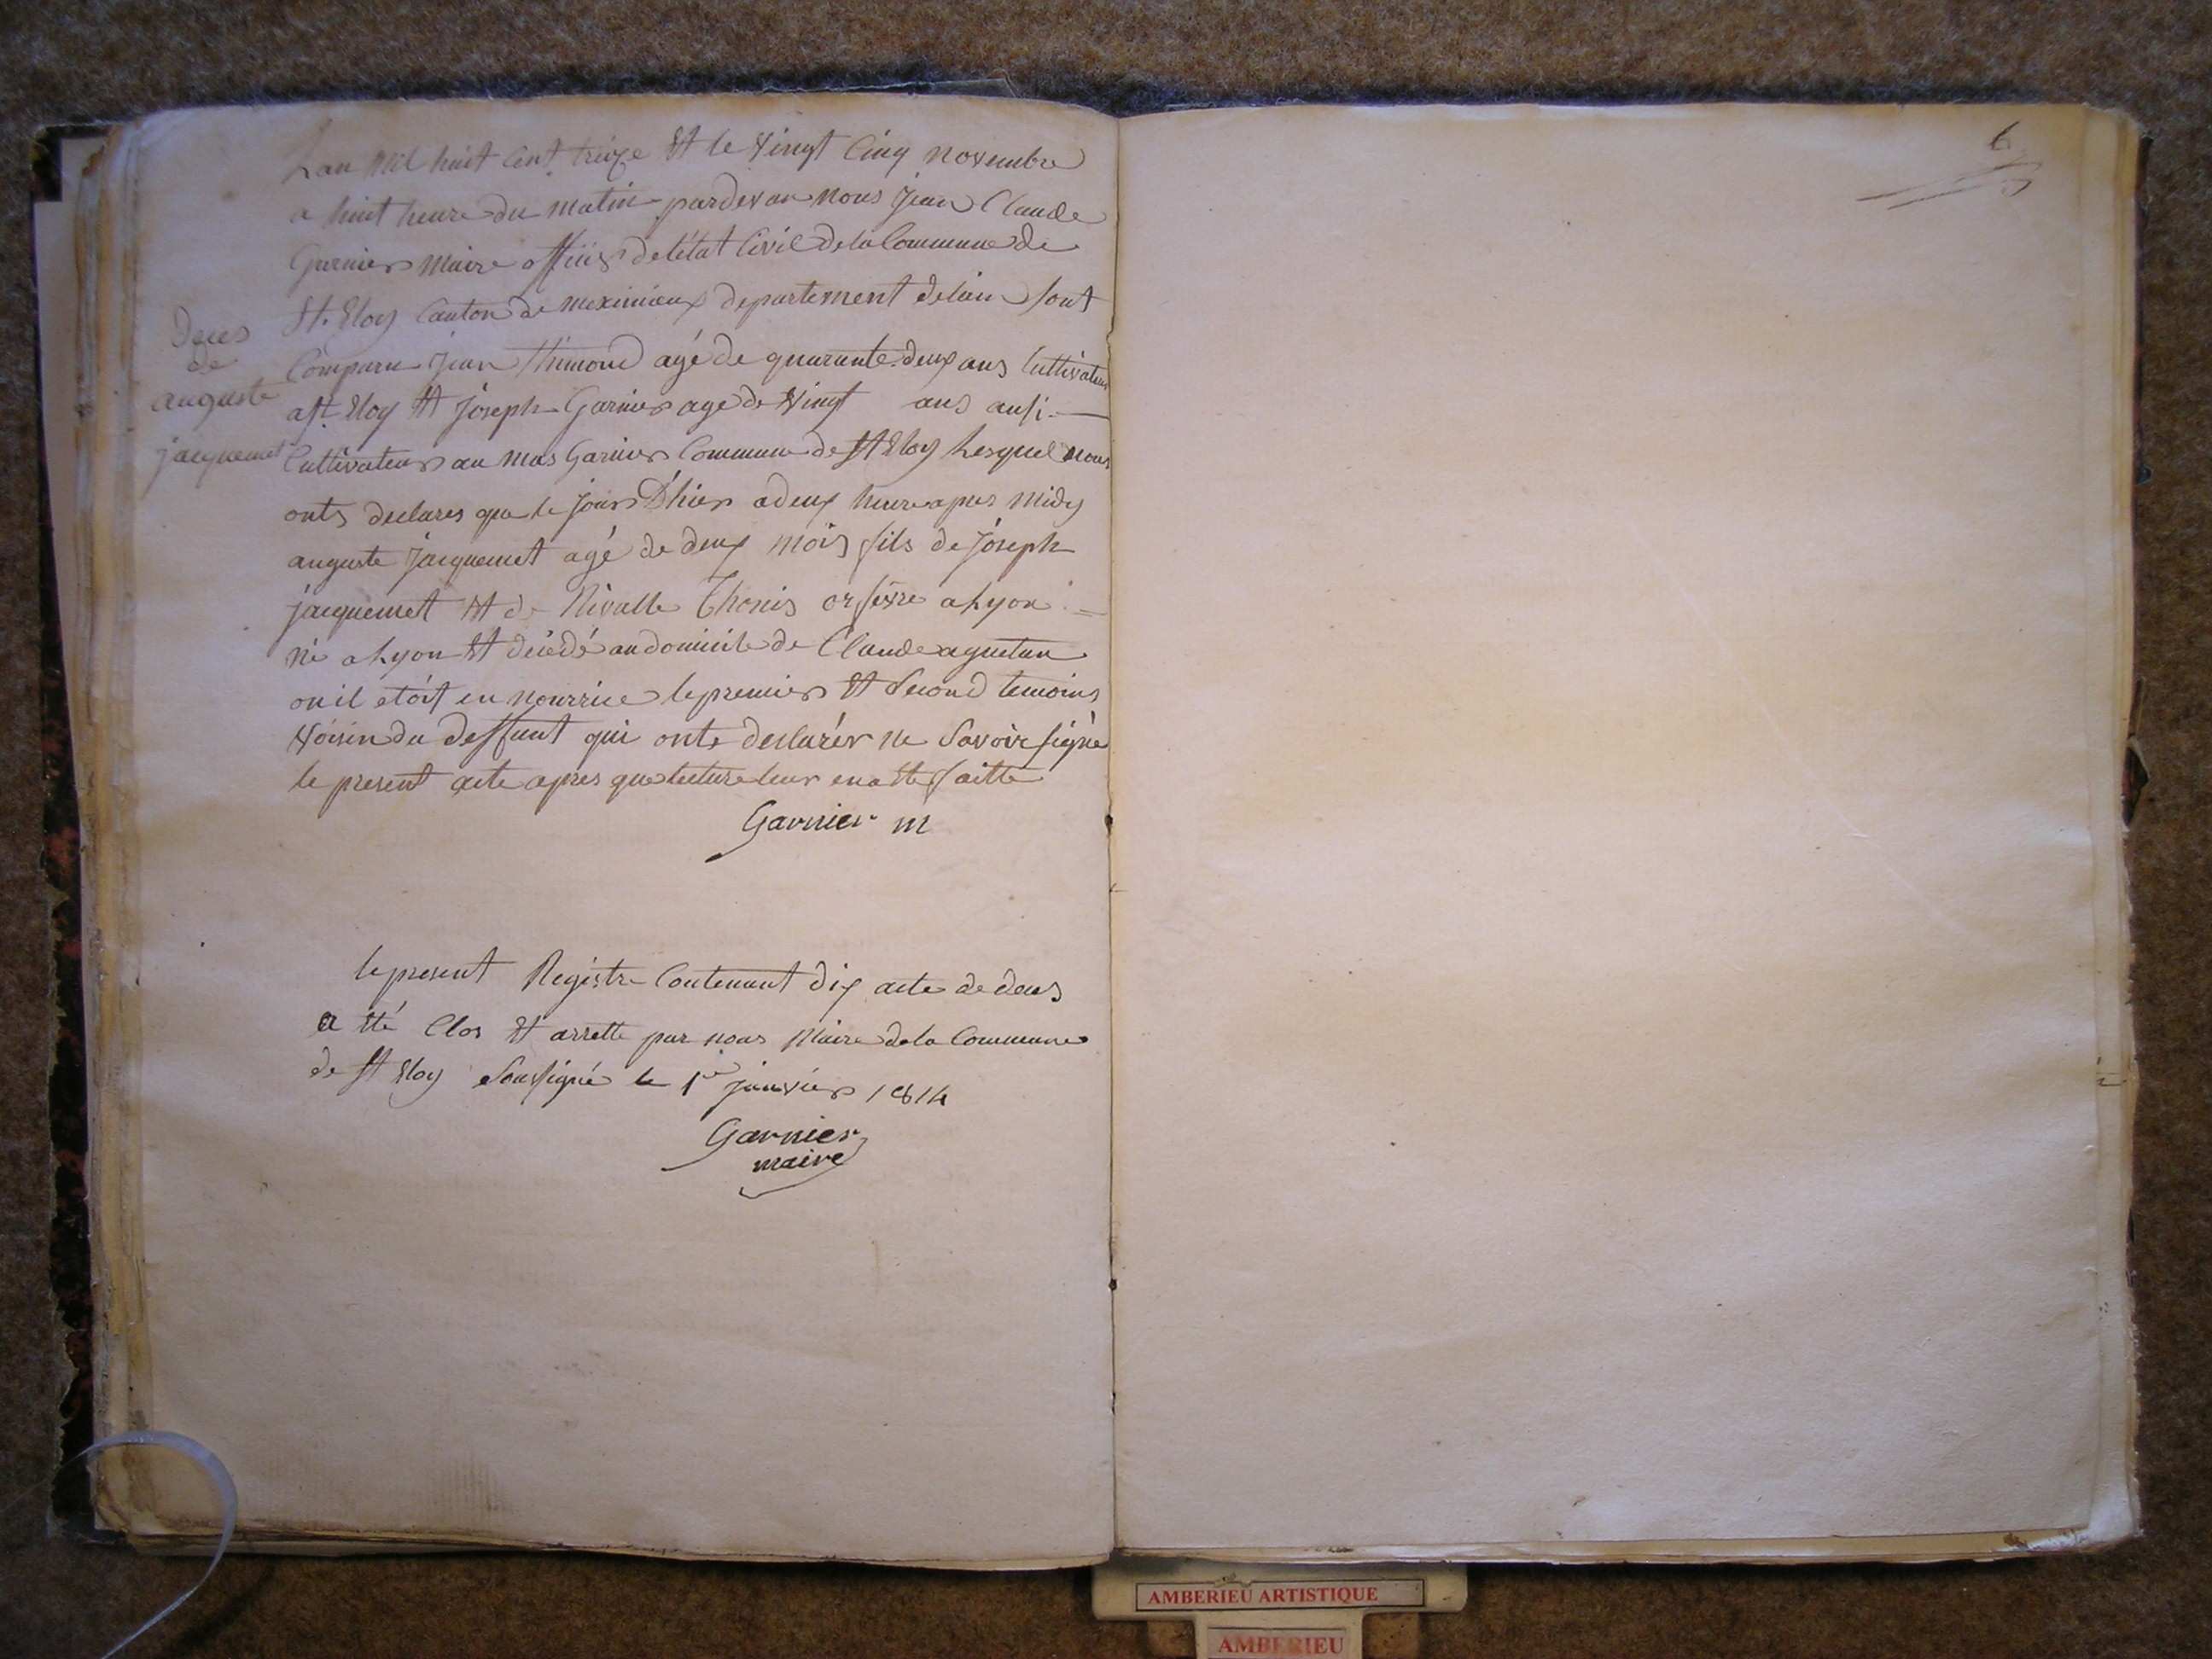 Deces
de
auguste
jacquemet
Lan Mil huit Cent treize Et le Vingt Cinq novembre
a huit heure du matin pardevan nous jean Claude
Garnier Maire officier de létat Civil de la Commune de
St. Eloy Canton de meximieux departement delain sont
Comparu jean thimond agé de quarante-deux ans Cultivateur
a St. Eloy Et joseph Garnier age de Vingt ans aussi
Cultivateur au mas Garnier Commune de St Eloy Lesquel nous
onts declares que le jour D'hier a deux heure apres midy
auguste jacquemet agé de deux mois fils de joseph
jacquemet Et de Thonis orfévre a Lyon
né a Lyon Et décédé au domicile de Claude aguetan
ou il etoit en nourrice le premier Et Second temoins
Voisin du deffunt qui onts declarér ne Savoir signé
le present acte apres que lecture leur en a Eté faitte
Garnier m
le present Registre Contenant dix acte de deces
a Eté Clos Et arretté par nous Maire de la Commune
de St Eloy Soussigné le 1er janvier 1814
Garnier
maire
6
AMBERIEU ARTISTIQUE
AMBERIEU